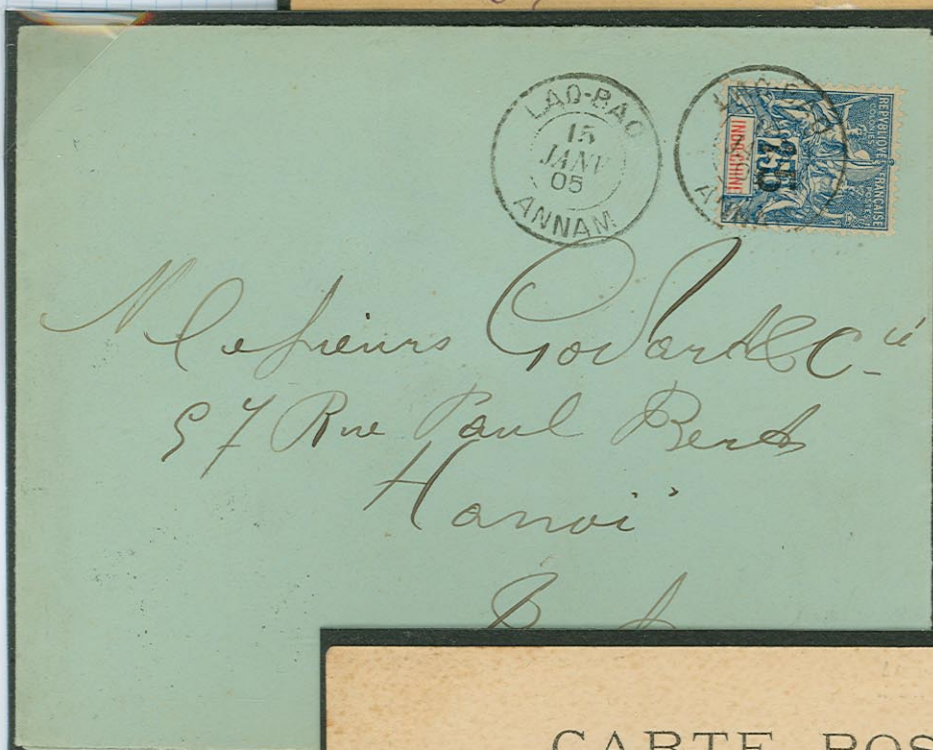 LAO-BAO
15
JANV
05
ANNAM
REPUBLIQUE FRANÇAISE
COLONIES
POSTES
INDOCHINE
25
Messieurs Godart & Cie
57 Rue Paul Bert
Hanoï
CARTE POS